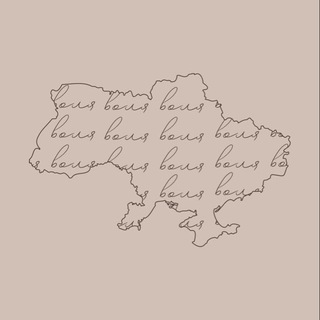 воля воля воля
воля воля воля воля
воля воля воля воля во
я воля воля
ля ля